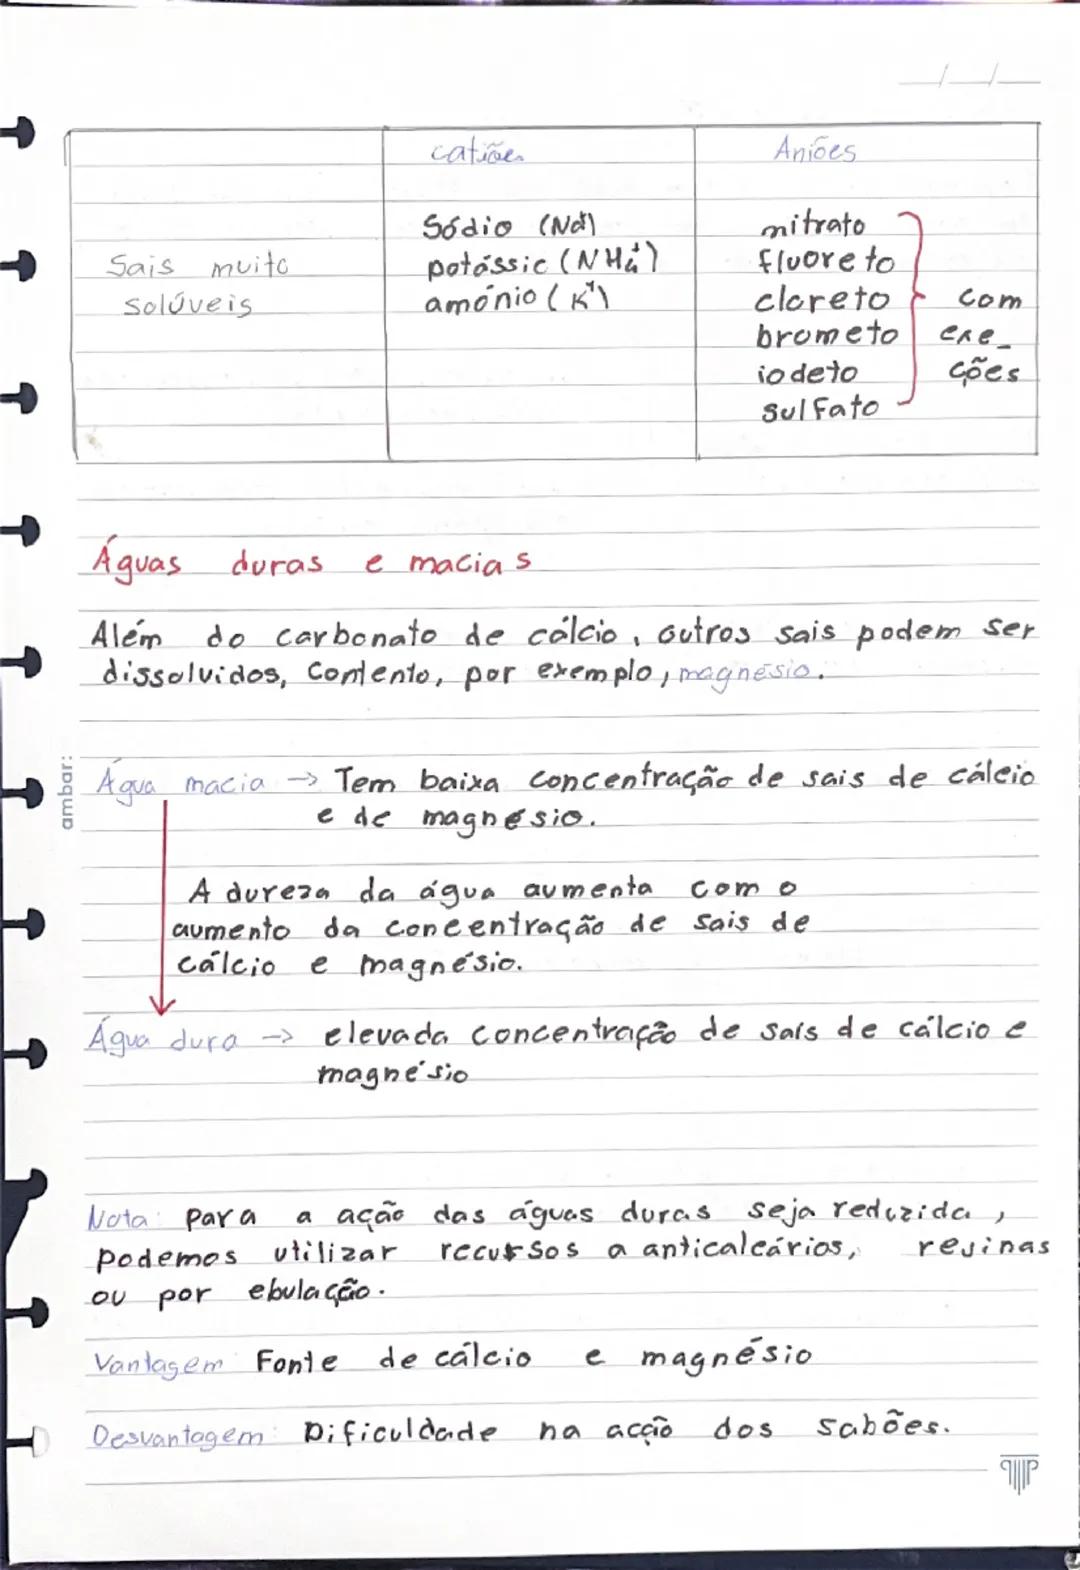 catiões
Aniões
Sódio (Na⁺)
potássic (NH₄⁺)
amónio (K⁺)
Sais muito
solúveis
nitrato
fluoreto
cloreto
brometo
iodeto
sulfato
com
exe_
ções
Águas duras e macias
Além do carbonato de cálcio, outros sais podem ser
dissolvidos, Contento, por exemplo, magnésio.
Água macia → Tem baixa concentração de sais de cálcio
e de magnésio.
A dureza da água aumenta com o
aumento da concentração de sais de
cálcio e magnésio.
Água dura → elevada concentração de sais de cálcio e
magnésio
Nota: para a ação das águas duras seja reduzida,
podemos utilizar recursos a anticalcários, resinas
ou por ebulação.
Vantagem Fonte de cálcio e magnésio
Desvantagem: Dificuldade na acção dos sabões.
ambar: